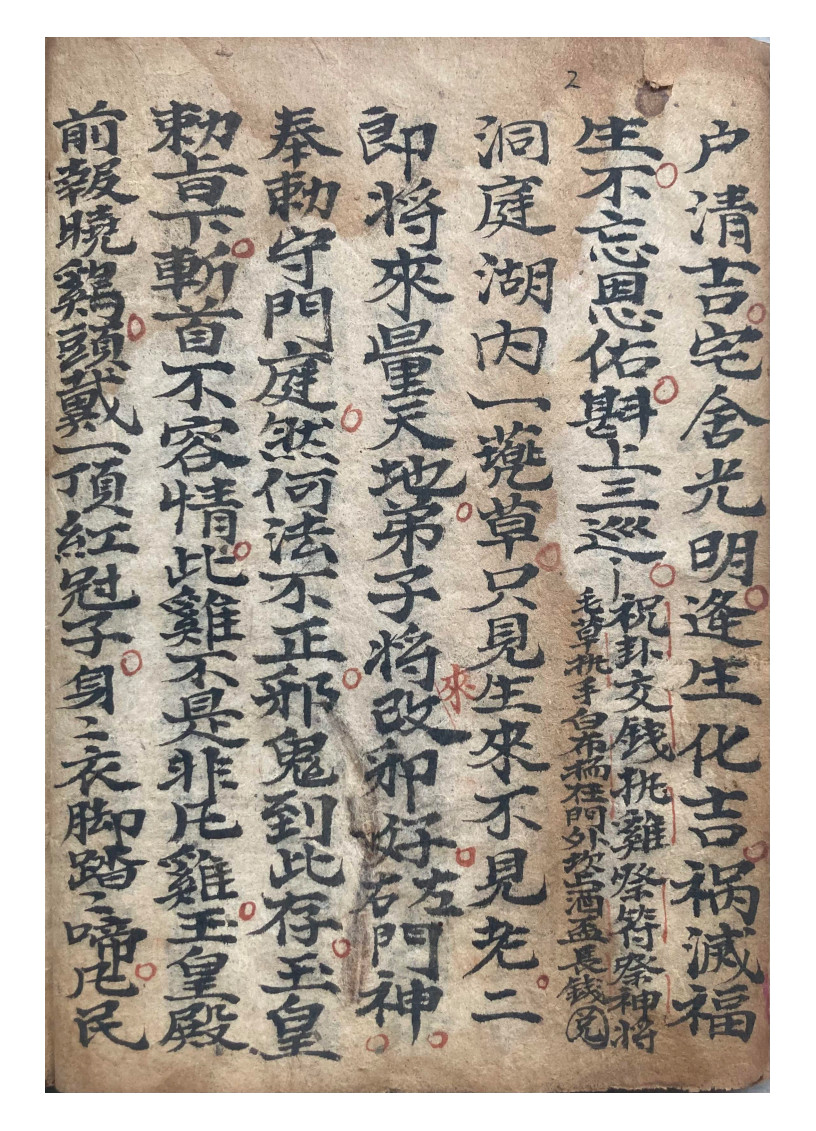 2
户清吉宅舍光明逢生化吉祸滅福
生不忘恩佑斟上三巡
祝卦交錢挑雞祭符祭神将
毛草挑手白布 在門外 酒盃長錢
洞庭湖内一 草只見生來不見老二
即将來量天地弟子将改 好左右門神
來
奉勅守門庭然何法不正邪鬼到此存玉皇
勅旨下斬首不容情此雞不是非凡雞玉皇殿
前報曉鷄頭戴一頂紅冠子身〻衣脚踏〻啼 民